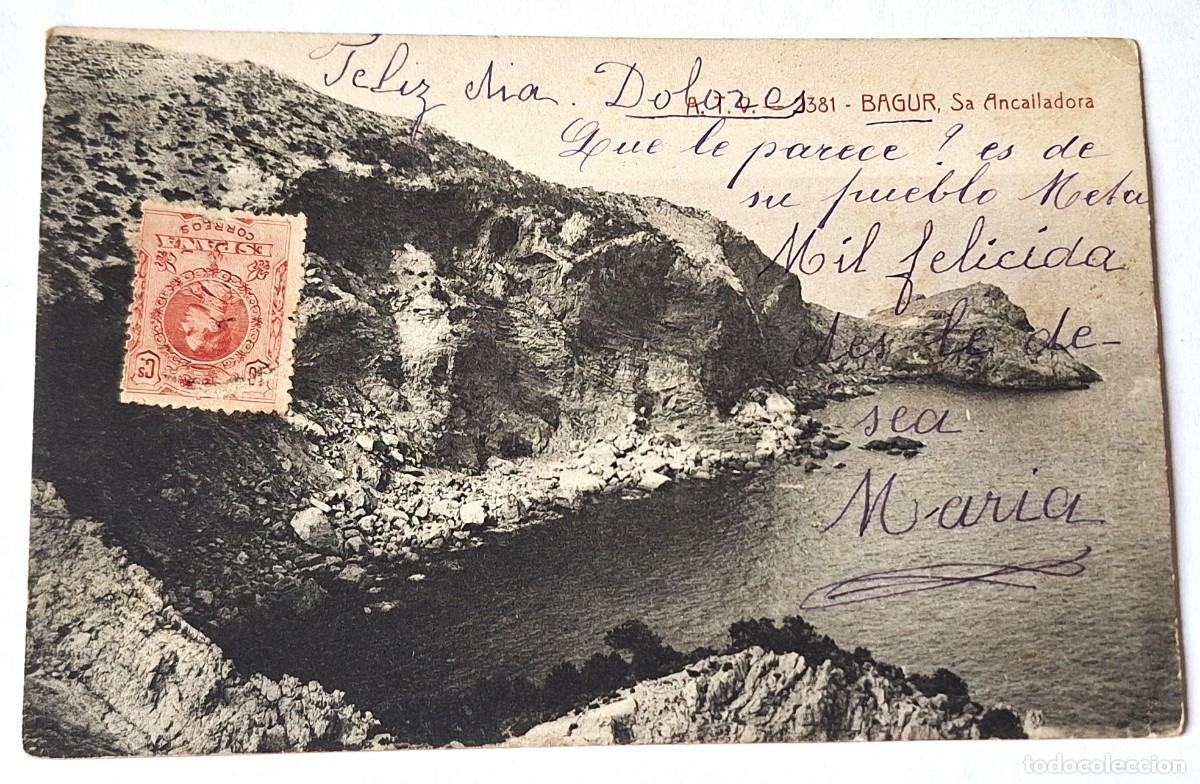 Feliz dia. Dolores
A. T. V. - 3381 - BAGUR, Sa Ancalladora
Que le parece? es de
su pueblo Meta
Mil felicida
des le de-
sea.
Maria
ESPAÑA
CORREOS
10 Cs
todocoleccion